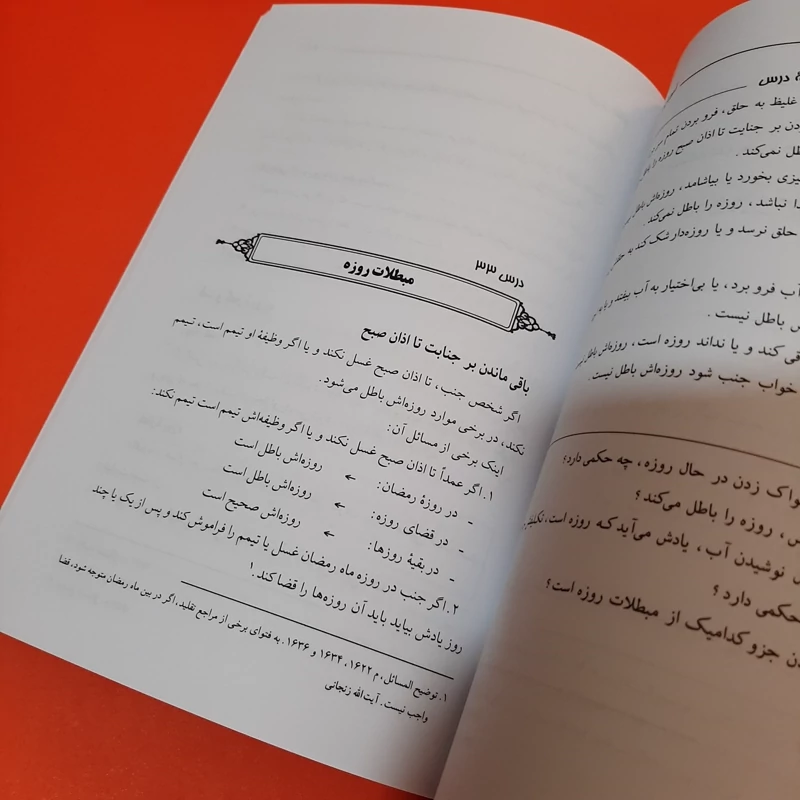 درس ۳۳
مبطلات روزه
باقی ماندن بر جنابت تا اذان صبح
اگر شخص جنب، تا اذان صبح غسل نکند و یا اگر وظیفهٔ او تیمم است، تیمم
نکند، در برخی موارد روزه‌اش باطل می‌شود.
اینک برخی از مسائل آن:
۱. اگر عمداً تا اذان صبح غسل نکند و یا اگر وظیفه‌اش تیمم است تیمم نکند:
- در روزهٔ رمضان: ← روزه‌اش باطل است
- در قضای روزه: ← روزه‌اش باطل است
- در بقیهٔ روزها: ← روزه‌اش صحیح است
۲. اگر جنب در روزه ماه رمضان غسل یا تیمم را فراموش کند و پس از یک یا چند
روز یادش بیاید باید آن روزه‌ها را قضا کند.۱
۱. توضیح المسائل، م ۱۶۲۲، ۱۶۳۴ و ۱۶۳۶. به فتوای برخی از مراجع تقلید، اگر در بین ماه رمضان متوجه شود، قضا
واجب نیست. آیت‌الله زنجانی
درس
غلیظ به حلق، فرو بردن تمام
بر جنابت تا اذان صبح روزه را
نمی‌کند.
بخورد یا بیاشامد، روزه‌اش باطل
نباشد، روزه را باطل نمی‌کند.
حلق نرسد و یا روزه‌دار شک کند به
آب فرو برد، یا بی‌اختیار به آب بیفتد و یا
باطل نیست.
کند و یا نداند روزه است، روزه‌اش باطل
خواب جنب شود روزه‌اش باطل نیست.
زدن در حال روزه، چه حکمی دارد؟
روزه را باطل می‌کند؟
نوشیدن آب، یادش می‌آید که روزه است،
حکمی دارد؟
جزو کدامیک از مبطلات روزه است؟